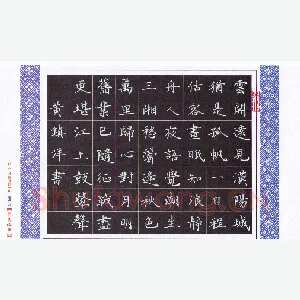 雲開遠見漢陽城
猶是孤帆一日程
估客晝眠知浪靜
舟人夜語覺潮生
三湘愁鬢逢秋色
萬里歸心對月明
舊業已隨征戰盡
更堪江上鼓鼙聲
黃鎮洋書